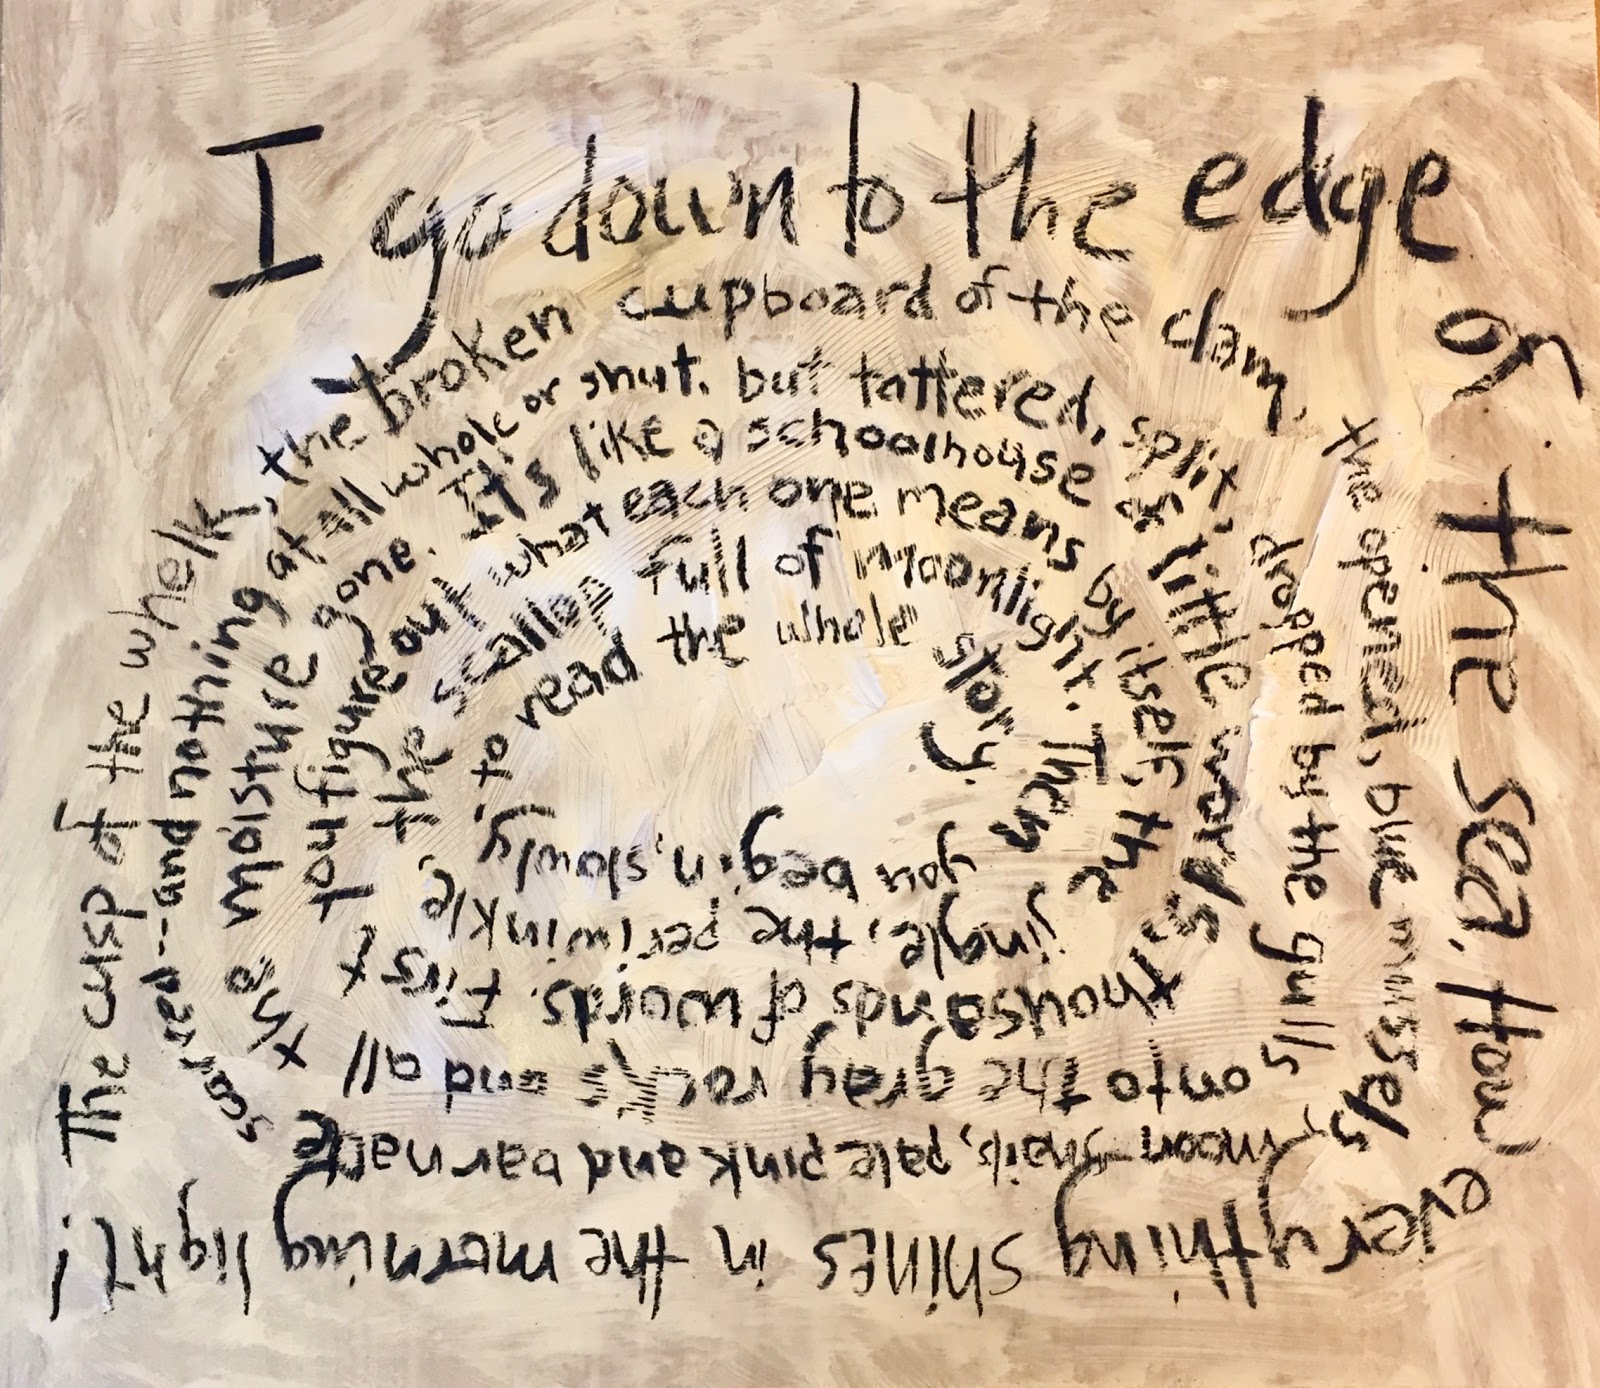 I go down to the edge
of the sea. How
everything shines in the morning light!
The cusp of the whelk,
the broken cupboard of the clam,
the opened, blue mussels,
moon snails, pale pink and barnacle
scarred--and nothing at all whole or shut, but tattered, split,
dropped by the gulls
onto the gray rocks and all
the moisture gone. It's like a schoolhouse of little words,
thousands of words. First
you figure out what each one means by itself, the
jingle, the periwinkle,
the scallop full of moonlight. Then
you begin, slowly,
to read the whole story.